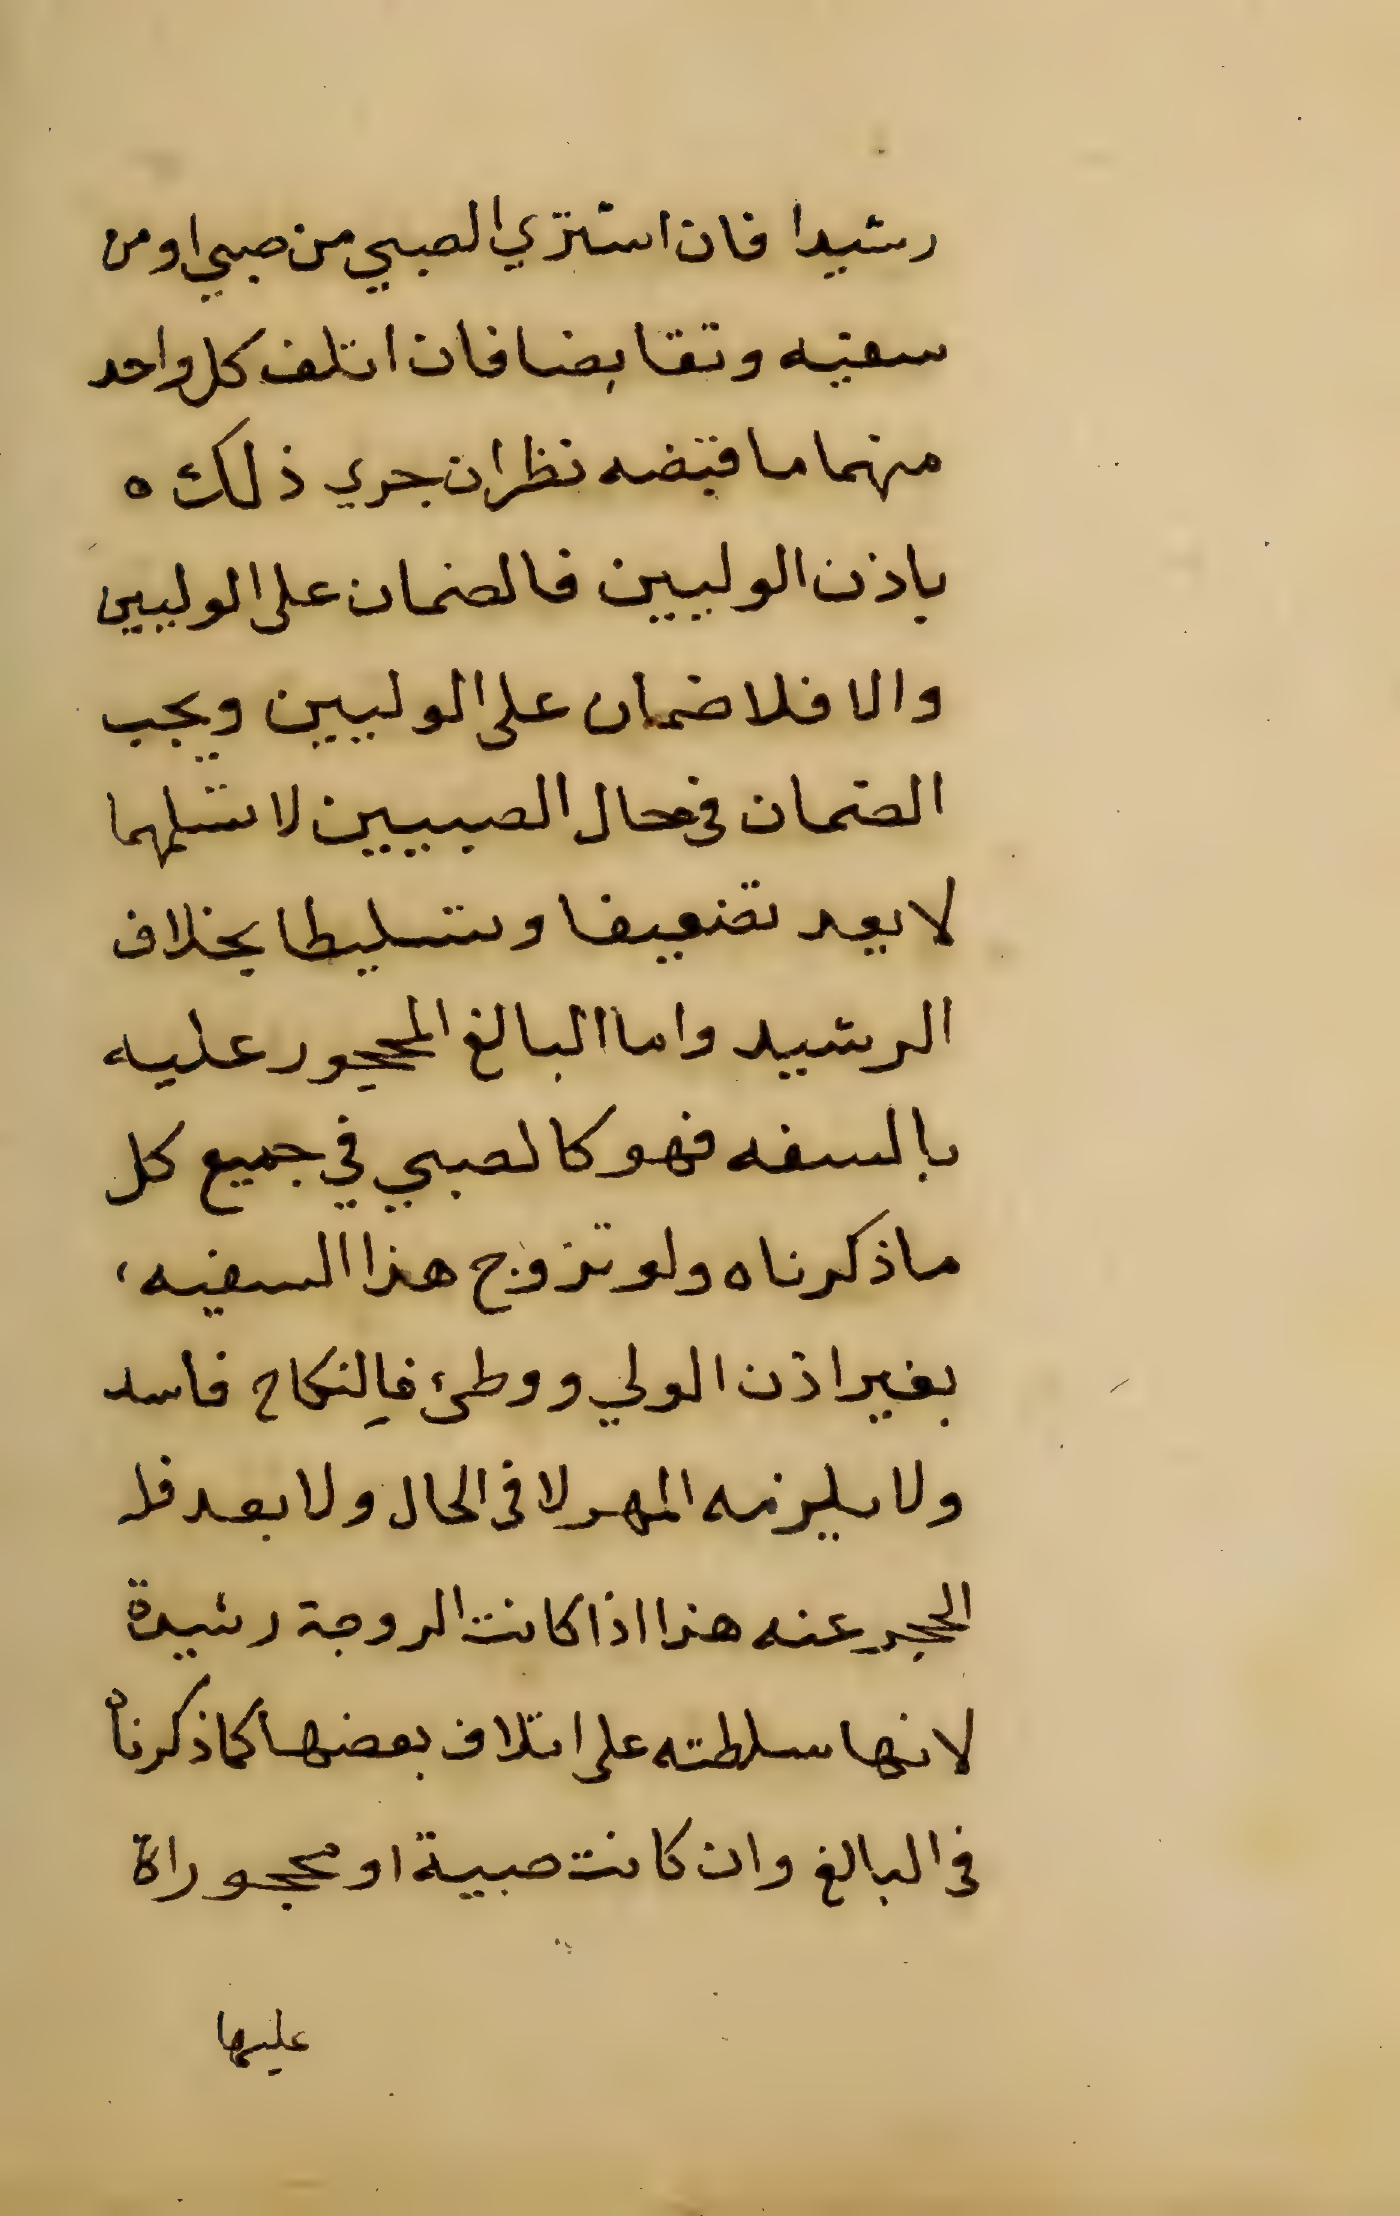 رشيدا فان اشتري الصبي من صبي او من
سفيه وتقابضا فان اتلف كل واحد
منهما ما قبضه نظر ان جري ذلك ه
باذن الوليين فالضمان علي الوليين
والا فلا ضمان علي الوليين ويجب
الضمان في محال الصبيين لا تسلمهما
لا يعد تضعيفا وتسليطا بخلاف
الرشيد واما البالغ المحجور عليه
بالسفه فهو كالصبي في جميع كل
ما ذكرناه ولو تزوج هذا السفيه،
بغير اذن الولي ووطئ فالنكاح فاسد
ولا يلزمه المهر لا في الحال ولا بعد فك
الحجر عنه هذا اذا كانت الزوجة رشيدة
لانها سلطته علي اتلاف بعضها كما ذكرناه
في البالغ وان كانت صبية او محجوراة
عليها